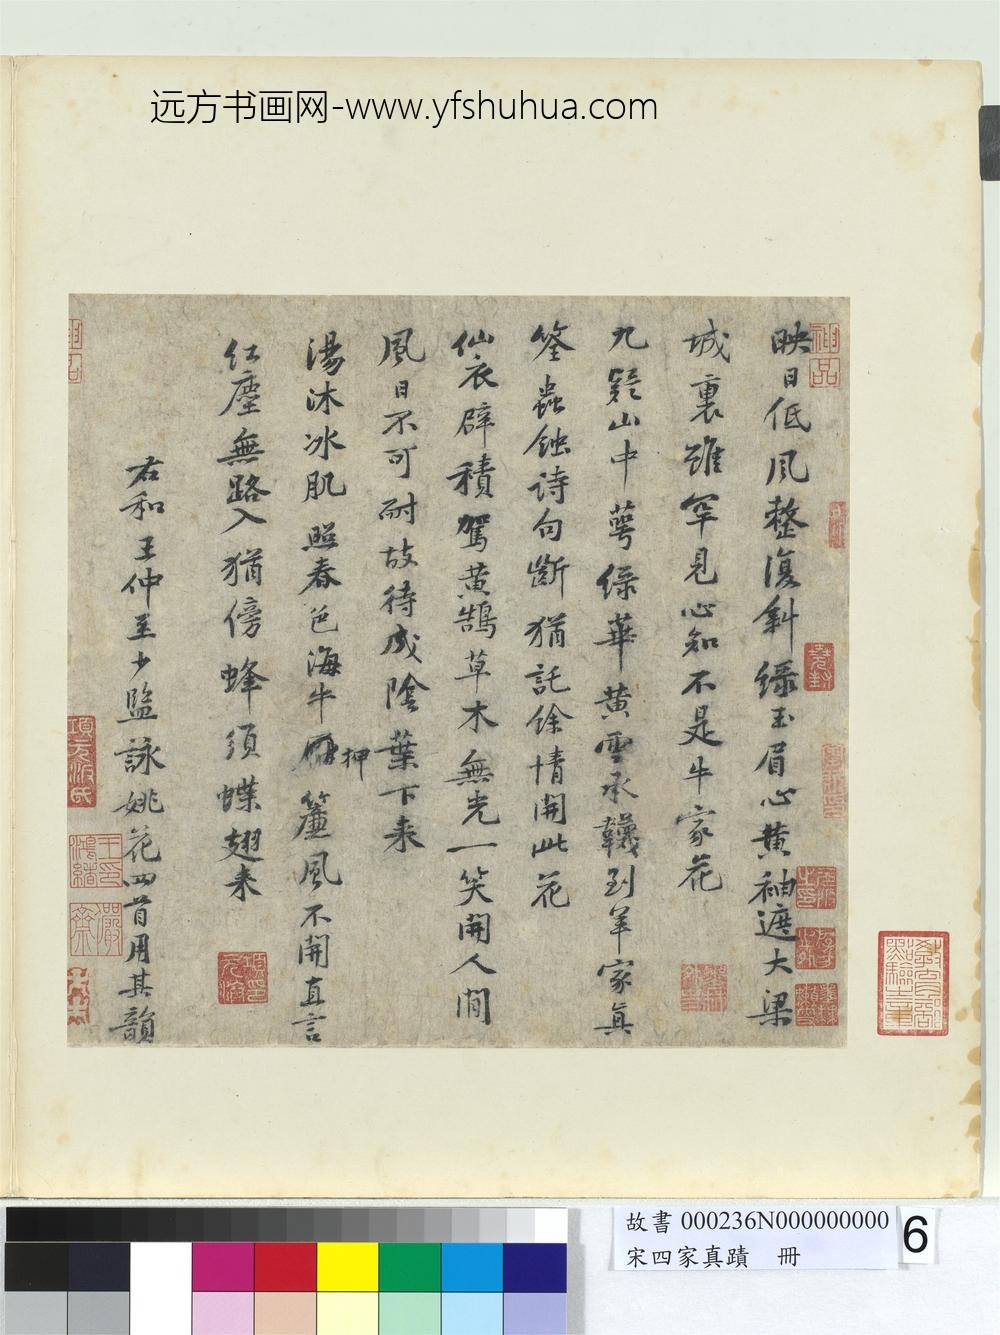 远方书画网-www.yfshuhua.com
映日低风整復斜綠玉眉心黄袖遮大梁
城裏雖罕見心知不是牛家花
九疑山中萼綠華黄雲承韈到羊家真
筌蟲蝕诗句斷猶託餘情開此花
仙衣襞積駕黄鵠草木無光一笑開人間
風日不可耐故待成陰葉下来
湯沐冰肌照春色海牛押簾風不開直言
红塵無路入猶傍蜂須蝶翅来
右和王仲至少監詠姚花四首用其韻
神品
項元汴氏
王鴻緒印
儼齋
項元汴印
故書 000236N000000000
宋四家真蹟 冊
6